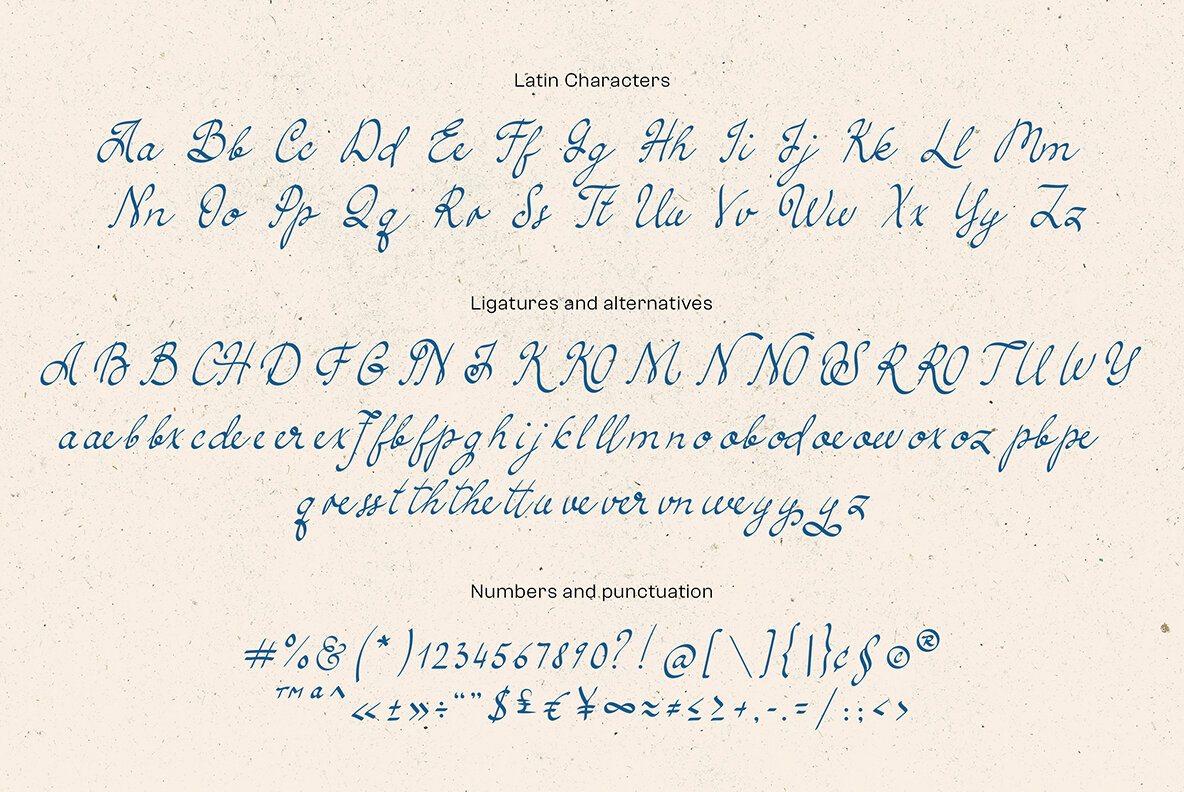 Latin Characters
Aa Bb Cc Dd Ee Ff Gg Hh Ii Jj Kk Ll Mm
Nn Oo Pp Qq Rr Ss Tt Uu Vv Ww Xx Yy Zz
Ligatures and alternatives
A B B CH D F G IN J K KO M N NO OS R RO T U W Y
a ae b bx c de e er ex f fb fp g h i j k l ll m n o ob od oe ow ox oz pb pe
q re ss t th the tt u ve ver vn we y y y z
Numbers and punctuation
#%&(*)1234567890?!@[\]{|}¢§©®
™ a ^ «±»÷“”$£€¥∞≈≠≤≥+,-.=/:;<>